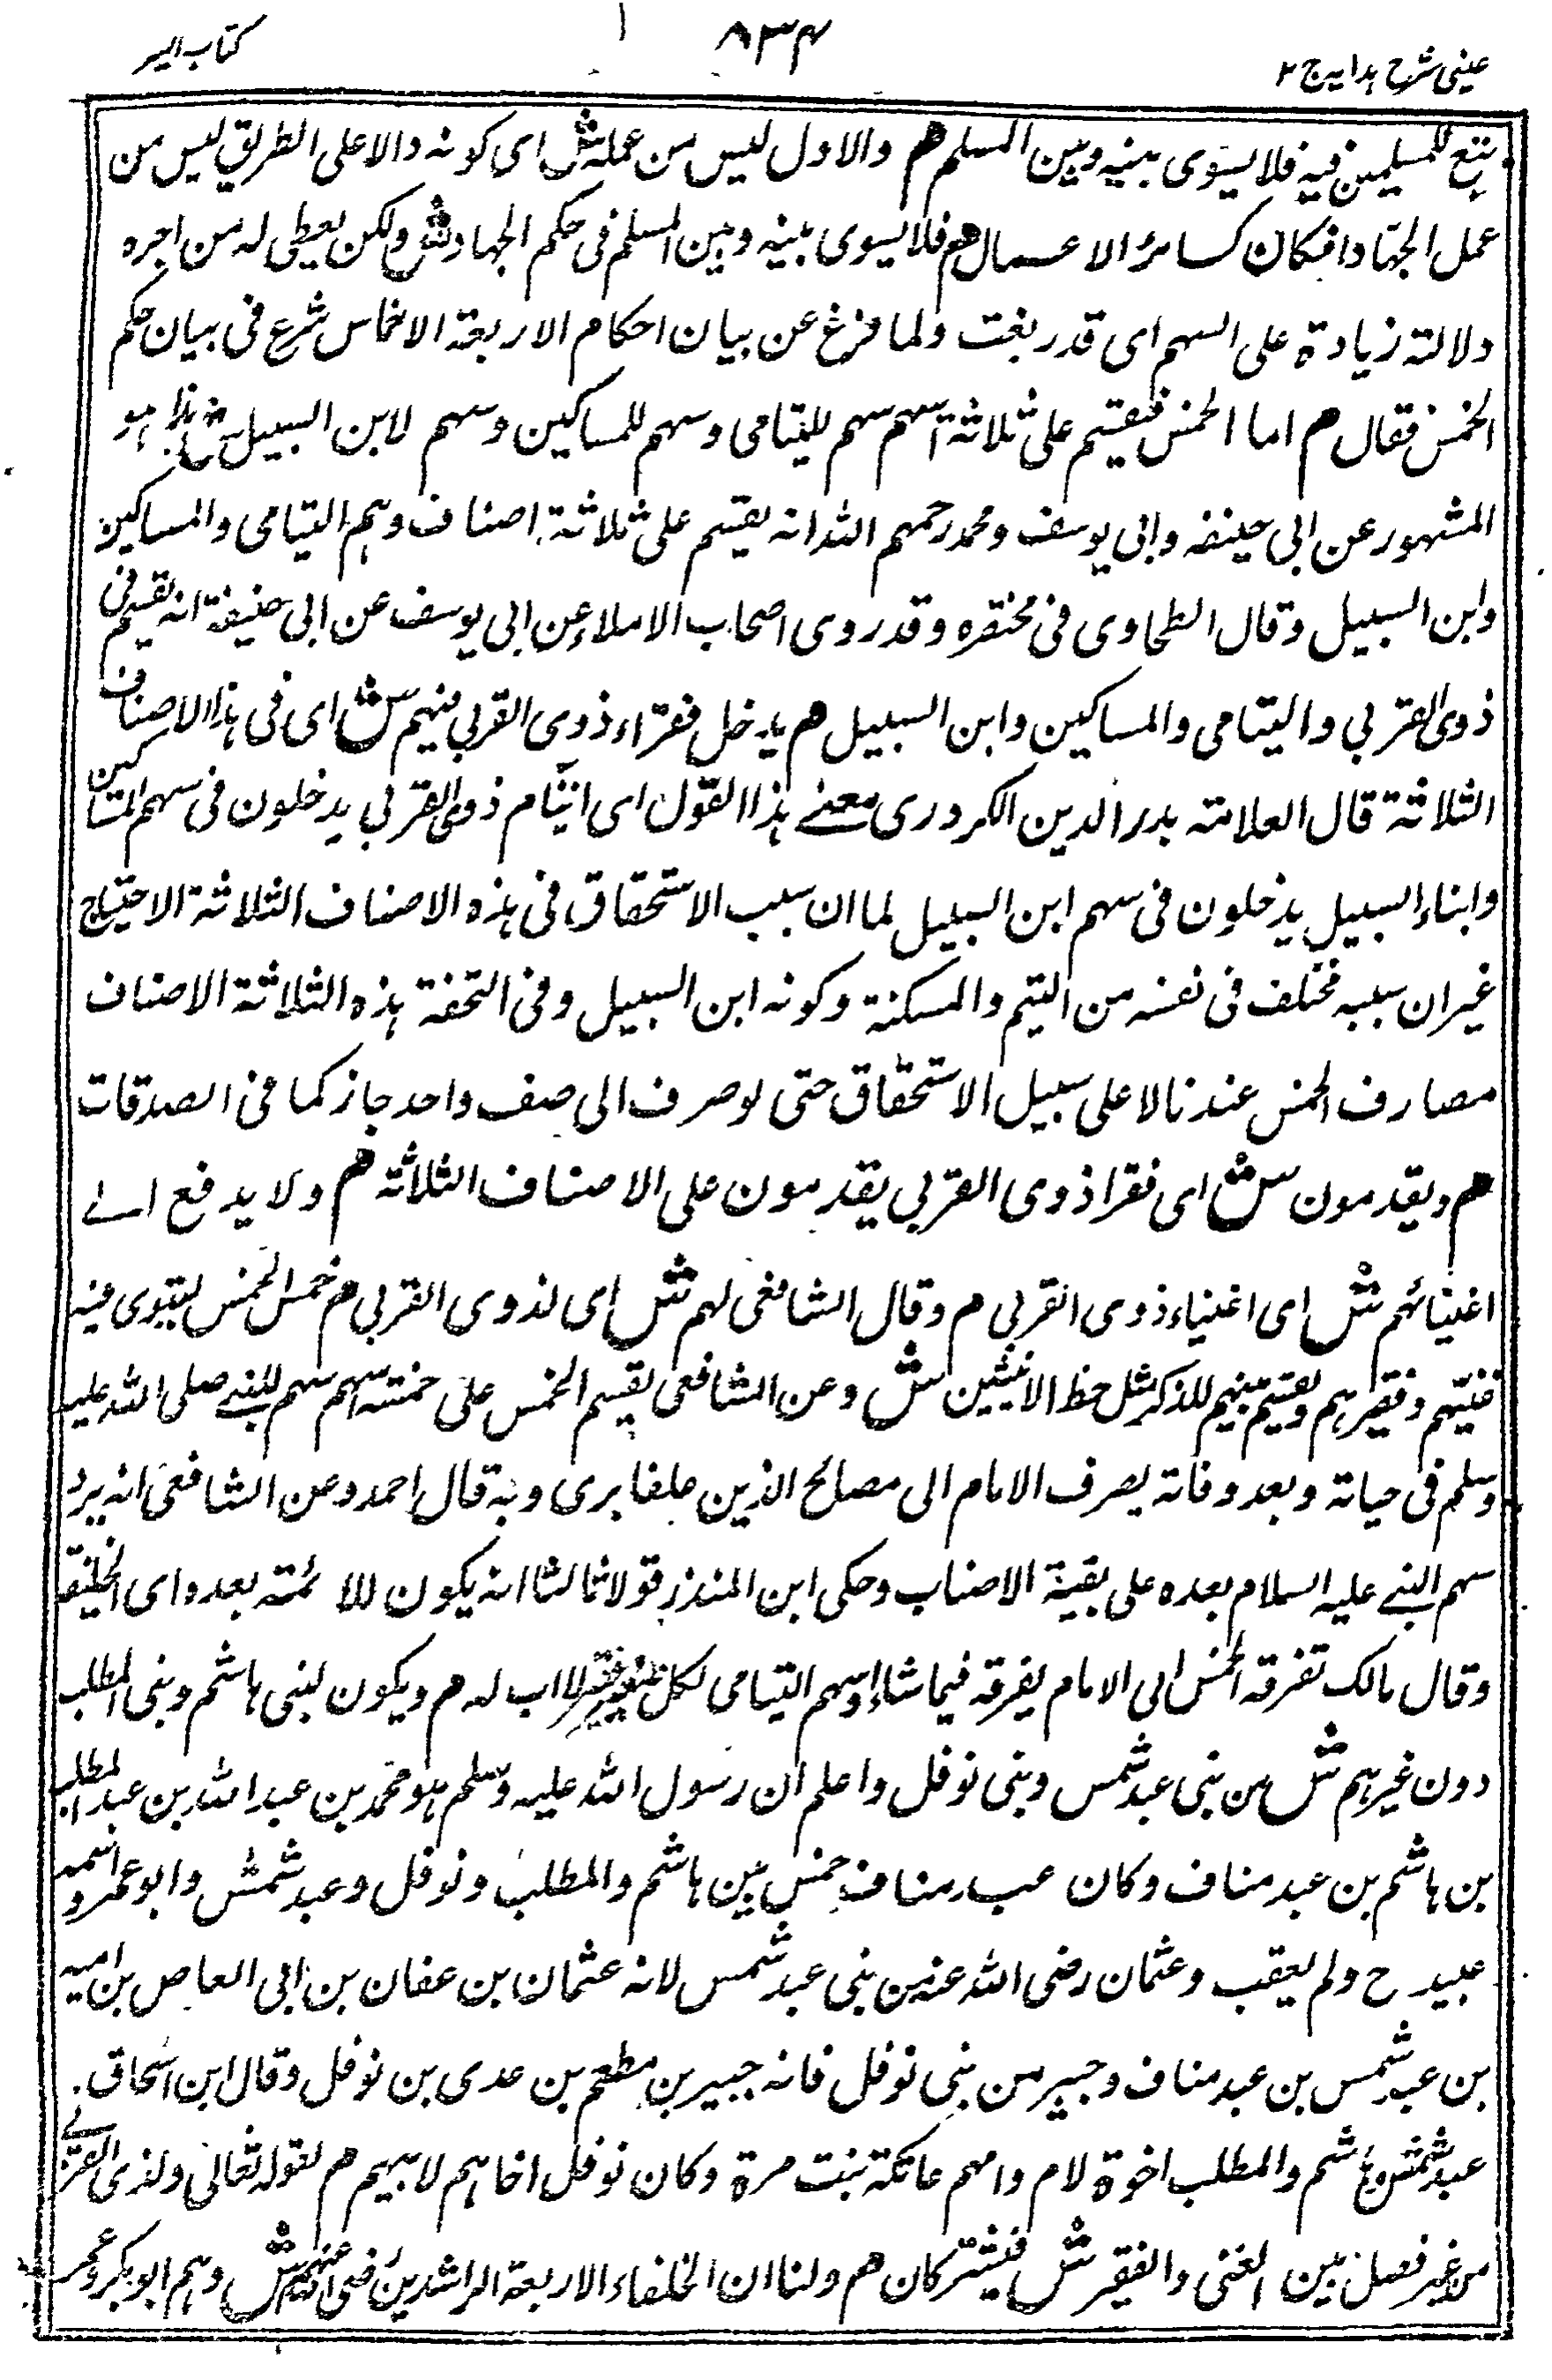 عینی شرح ہدایہ ج ۲
۸۳۴
کتاب السیر
یتبع للمسلمین فیہ فلا یسوی بینہ وبین المسلم هم والاول لیس من عملہ ش ای کونہ دالا علی الطریق لیس من
عمل الجہاد فکان کسائر الاعمال هم فلا یسوی بینہ وبین المسلم فی حکم الجہاد ش ولکن یعطی لہ من اجرہ
دلالتہ زیادۃ علی السہم ای قدر بغت ولما فرغ عن بیان احکام الاربعۃ الاخماس شرع فی بیان حکم
الخمس فقال م اما الخمس فیقسم علی ثلاثۃ اسہم سہم للیتامی وسہم للمساکین وسہم لابن السبیل ش ہذا ہو
المشہور عن ابی حنیفہ وابی یوسف ومحمد رحمہم اللہ انہ یقسم علی ثلاثۃ اصناف وہم الیتامی والمساکین
وابن السبیل وقال الطحاوی فی مختصرہ وقد روی اصحاب الاملاء عن ابی یوسف عن ابی حنیفۃ انہ یقسم فی
ذوی القربی والیتامی والمساکین وابن السبیل هم یدخل فقراء ذوی القربی فیہم ش ای فی ہذا الاصناف
الثلاثۃ قال العلامتہ بدر الدین الکردری معنے ہذا القول ای ایتام ذوی القربی یدخلون فی سہم المساکین
وابناء السبیل یدخلون فی سہم ابن السبیل لما ان سبب الاستحقاق فی ہذہ الاصناف الثلاثۃ الاحتیاج
غیر ان سببہ مختلف فی نفسہ من الیتم والمسکنۃ وکونہ ابن السبیل وفی التحفۃ ہذہ الثلاثۃ الاصناف
مصارف الخمس عندنا لا علی سبیل الاستحقاق حتی لو صرف الی صنف واحد جاز کما فی الصدقات
هم ویقدمون ش ای فقرا ذوی القربی یقدمون علی الاصناف الثلاثۃ هم ولا یدفع الے
اغنیائہم ش ای اغنیاء ذوی القربی م وقال الشافعی لہم ش ای لذوی القربی م خمس الخمس یستوی فیہ
غنیہم وفقیرہم ویقسم بینہم للذکر مثل حظ الانثیین ش وعن الشافعی یقسم الخمس علی خمستہ اسہم سہم للنبے صلی اللہ علیہ
وسلم فی حیاتہ وبعد وفاتہ یصرف الامام الی مصالح الذین خلفا یری وبہ قال احمد وعن الشافعی انہ یرد
سہم النبے علیہ السلام بعدہ علی بقیۃ الاصناب وحکی ابن المنذر قولا ثالثا انہ یکون للائمتہ بعدہ ای الخلیفۃ
وقال مالک تفرقہ الخمس الی الامام یفرقہ فیما شاء وسہم الیتامی لکل صغیر فقیر لا اب لہ م ویکون لبنی ہاشم وبنی المطلب
دون غیرہم ش من بنی عبد شمس وبنی نوفل واعلم ان رسول اللہ علیہ وسلم ہو محمد بن عبد اللہ بن عبد المطلب
بن ہاشم بن عبد مناف وکان عبد مناف خمس بین ہاشم والمطلب ونوفل وعبد شمس وابو عمرو اسمہ
عبید ح ولم یعقب وعثمان رضی اللہ عنہ من بنی عبد شمس لانہ عثمان بن عفان بن ابی العاص بن امیہ
بن عبد شمس بن عبد مناف وجبیر من بنی نوفل فانہ جبیر بن مطعم بن عدی بن نوفل وقال ابن اسحاق
عبد شمس وہاشم والمطلب اخوۃ لام وامہم عاتکۃ بنت مرۃ وکان نوفل اخاہم لابیہم م لقولہ تعالی ولذی القربے
من غیر فصل بین الغنی والفقیر ش فیشترکان هم ولنا ان الخلفاء الاربعۃ الراشدین رضی اللہ عنہم ش وہم ابو بکر وعمر